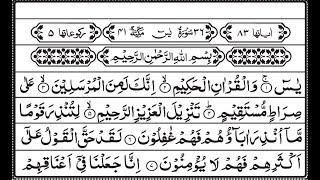 اٰیاتها ٨٣ ٣٦ سُوْرَةُ یٰسٓ مَكِّیَّةٌ ٤١ رکوعاتها ٥
بِسْمِ اللّٰهِ الرَّحْمٰنِ الرَّحِیْمِ
یٰسٓ ۚ﴿۱﴾ وَالْقُرْاٰنِ الْحَكِیْمِ ۙ﴿۲﴾ اِنَّكَ لَمِنَ الْمُرْسَلِیْنَ ۙ﴿۳﴾ عَلٰی
صِرَاطٍ مُّسْتَقِیْمٍ ؕ﴿۴﴾ تَنْزِیْلَ الْعَزِیْزِ الرَّحِیْمِ ۙ﴿۵﴾ لِتُنْذِرَ قَوْمًا
مَّاۤ اُنْذِرَ اٰبَآؤُهُمْ فَهُمْ غٰفِلُوْنَ ﴿۶﴾ لَقَدْ حَقَّ الْقَوْلُ عَلٰۤی
اَكْثَرِهِمْ فَهُمْ لَا یُؤْمِنُوْنَ ﴿۷﴾ اِنَّا جَعَلْنَا فِیْۤ اَعْنَاقِهِمْ